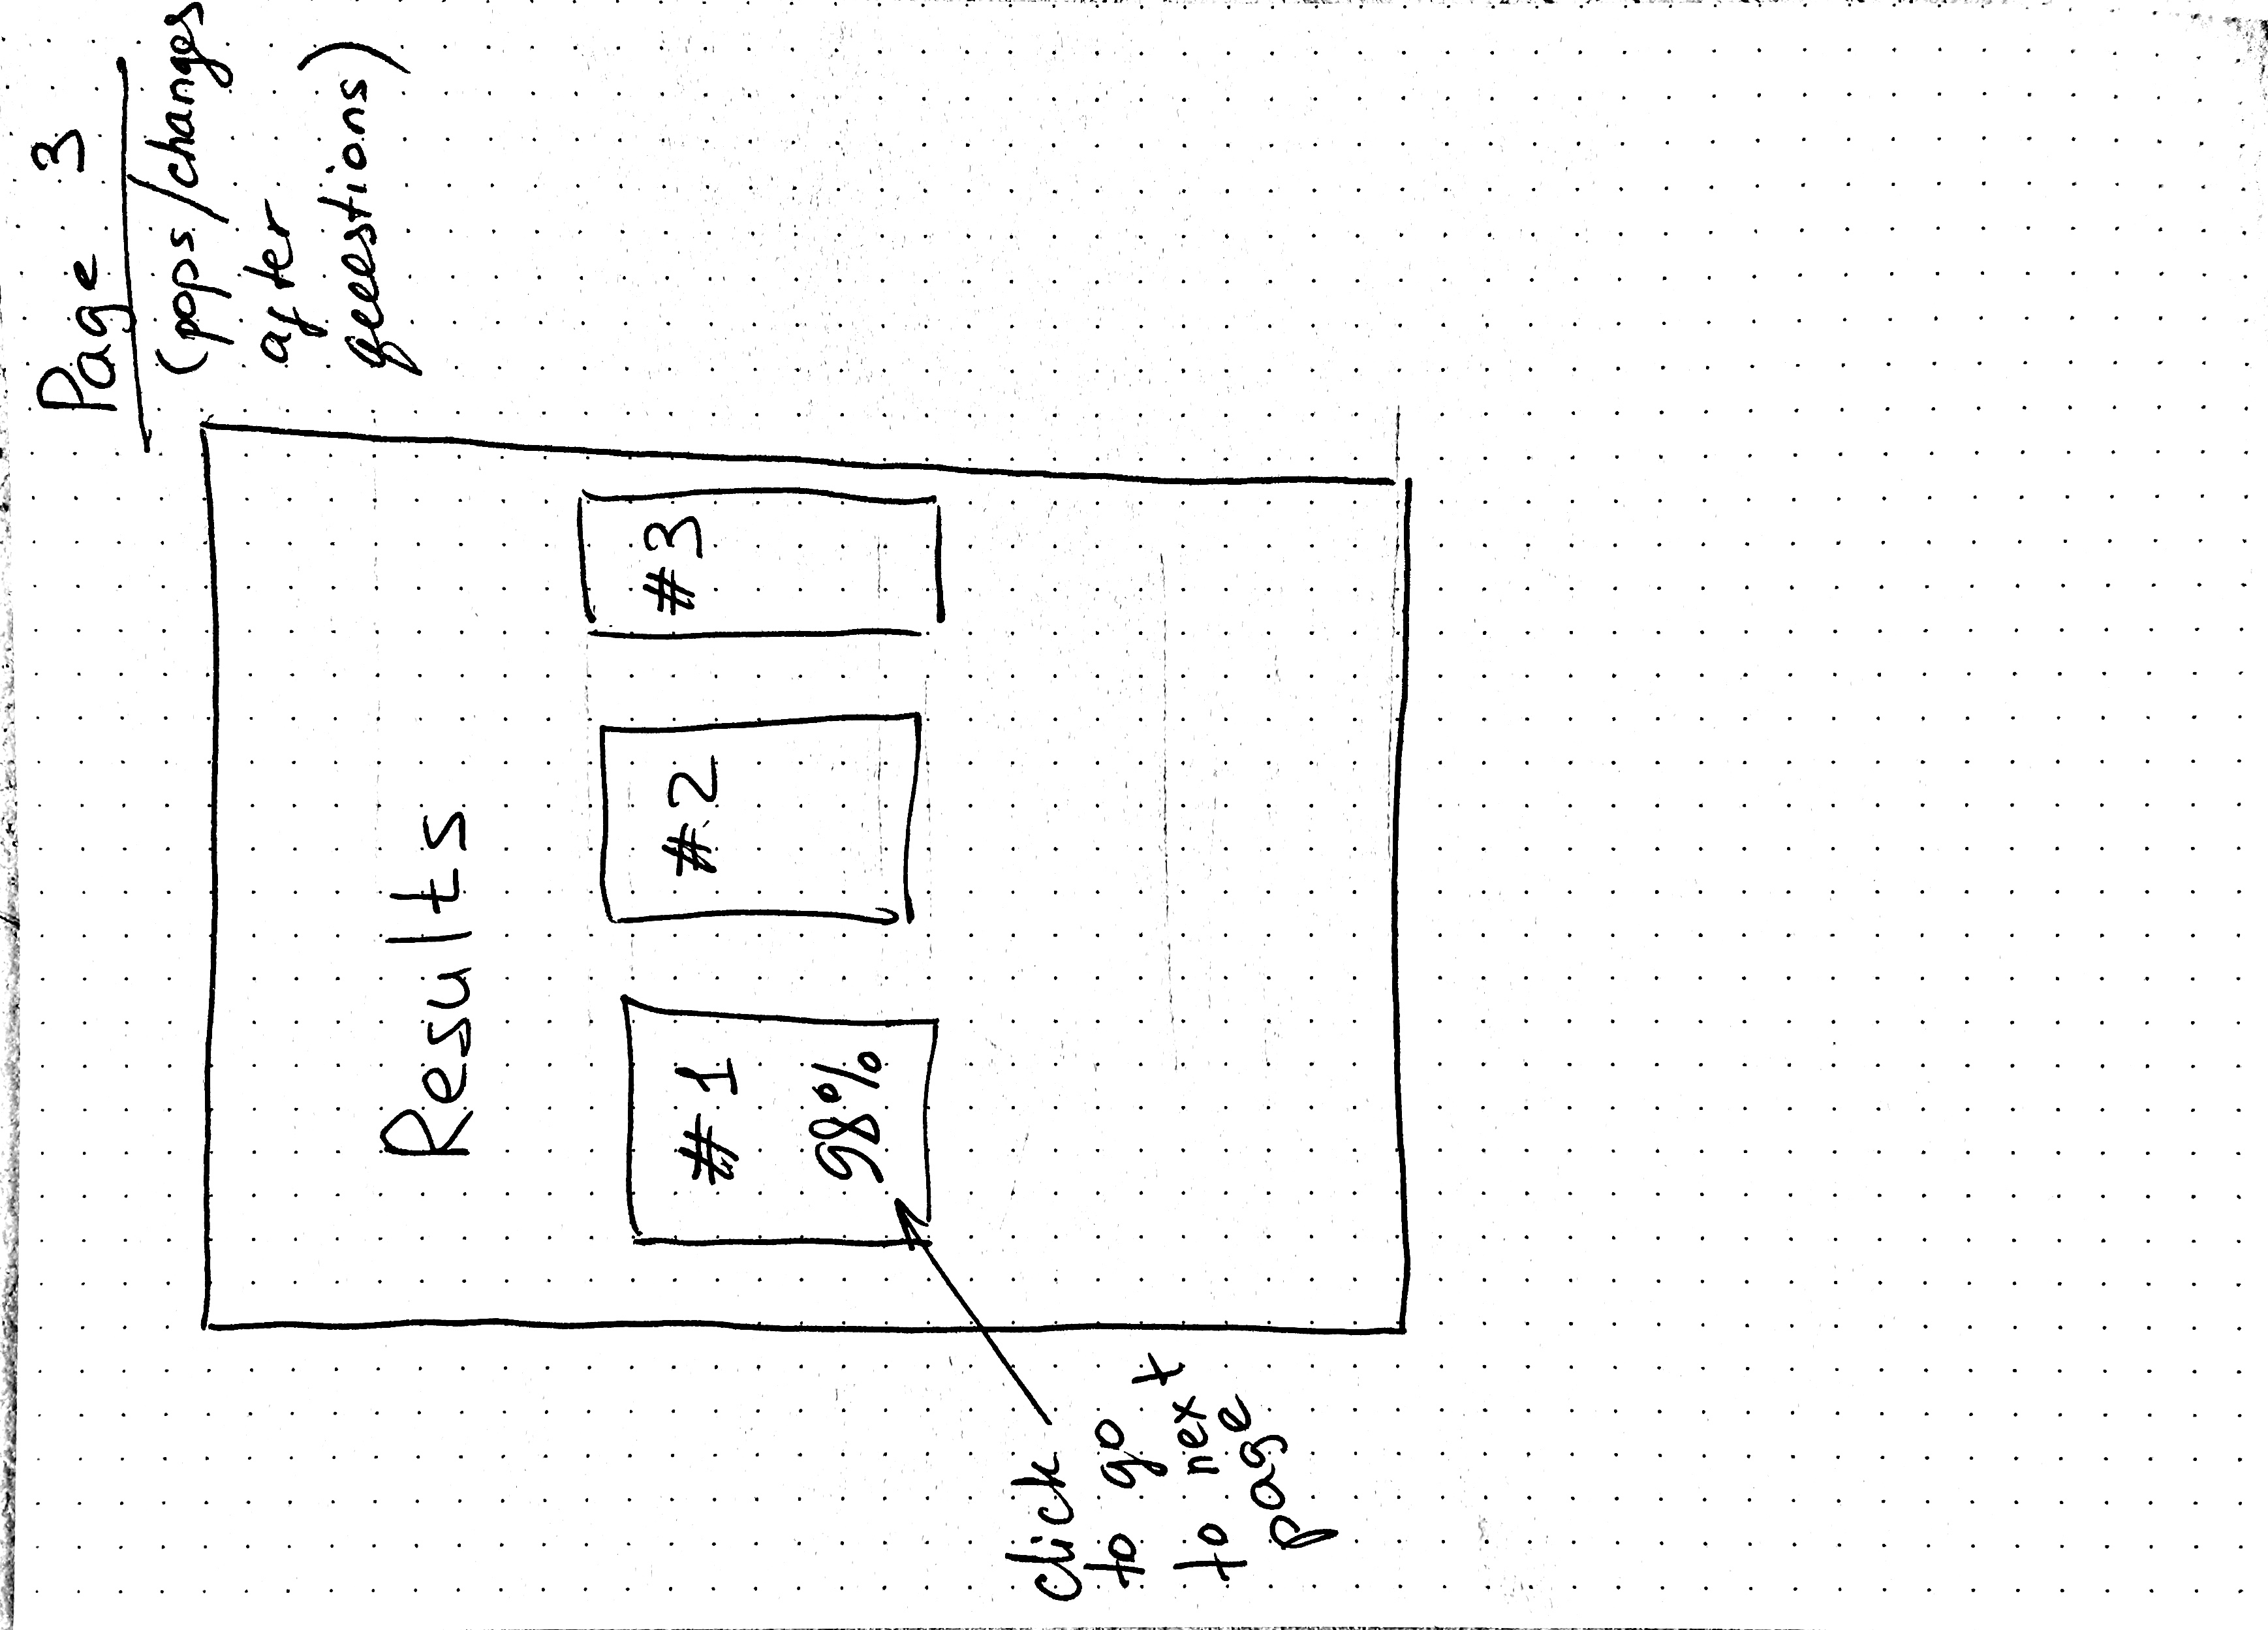 Page 3
(pops/changes
after
questions)
Results
#1
98%
#2
#3
click
to go
to next
page